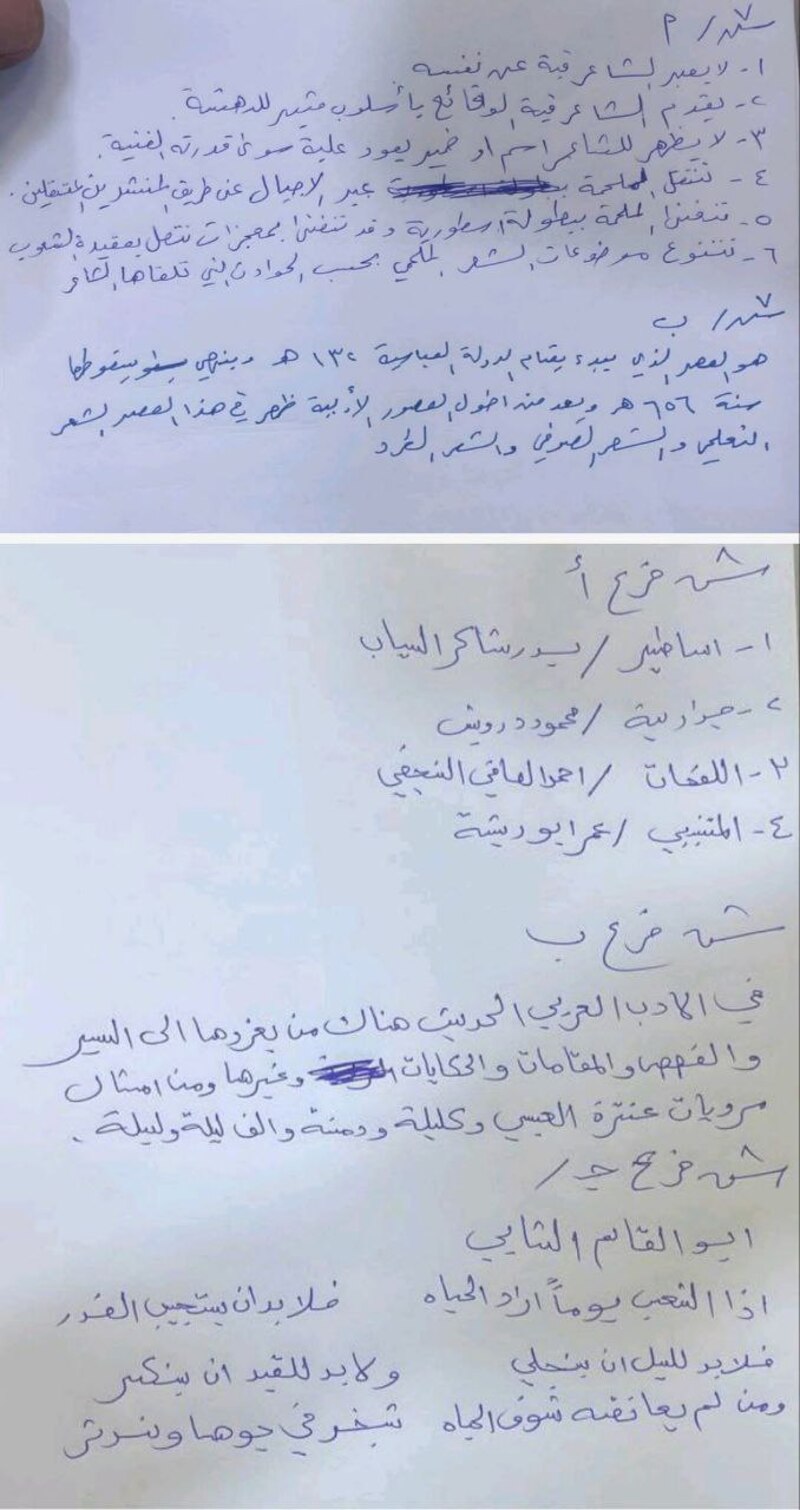 س٧/ م
١- لا يعبر الشاعر فية عن نفسه
٢- يقدم الشاعر فية الوقائع بأسلوب مثير للدهشة.
٣- لا يظهر للشاعر اسم او ضمير يعود علية سوى قدرته الفنية.
٤- تنتقل الملحمة عبر الاجيال عن طريق المنشدين المتنقلين.
٥- تتغنى الملحمة ببطولة اسطورية وقد تتغنى بمعجزات تتصل بعقيدة الشعوب
٦- تتنوع موضوعات الشعر الملحمي بحسب الحوادث التي تلقاها الشاعر
س٧/ ب
هو العصر الذي يبدء بقيام الدولة العباسية ١٣٢ هـ وينتهي بسقوطها
سنة ٦٥٦ هـ ويعد من اطول العصور الأدبية ظهر في هذا العصر الشعر
التعلمي والشعر الصوفي والشعر الطرد
س٨ فرع أ
١- اساطير / بدر شاكر السياب
٢- جدارية / محمود درويش
٣- اللفحات / احمد الصافي النجفي
٤- المتنبي / عمر ابو ريشة
س٨ فرع ب
في الادب العربي الحديث هناك من يعزوها الى السير
والقصص والمقامات والحكايات وغيرها ومن امثال
مرويات عنترة العبسي وكليلة ودمنة والف ليلة وليلة.
س٨ فرع جـ /
ابو القاسم الشابي
اذا الشعب يوماً اراد الحياه فلا بد ان يستجيب القدر
فلا بد لليل ان ينجلي ولا بد للقيد ان ينكسر
ومن لم يعانقه شوق الحياه تبخر في جوها وندثر